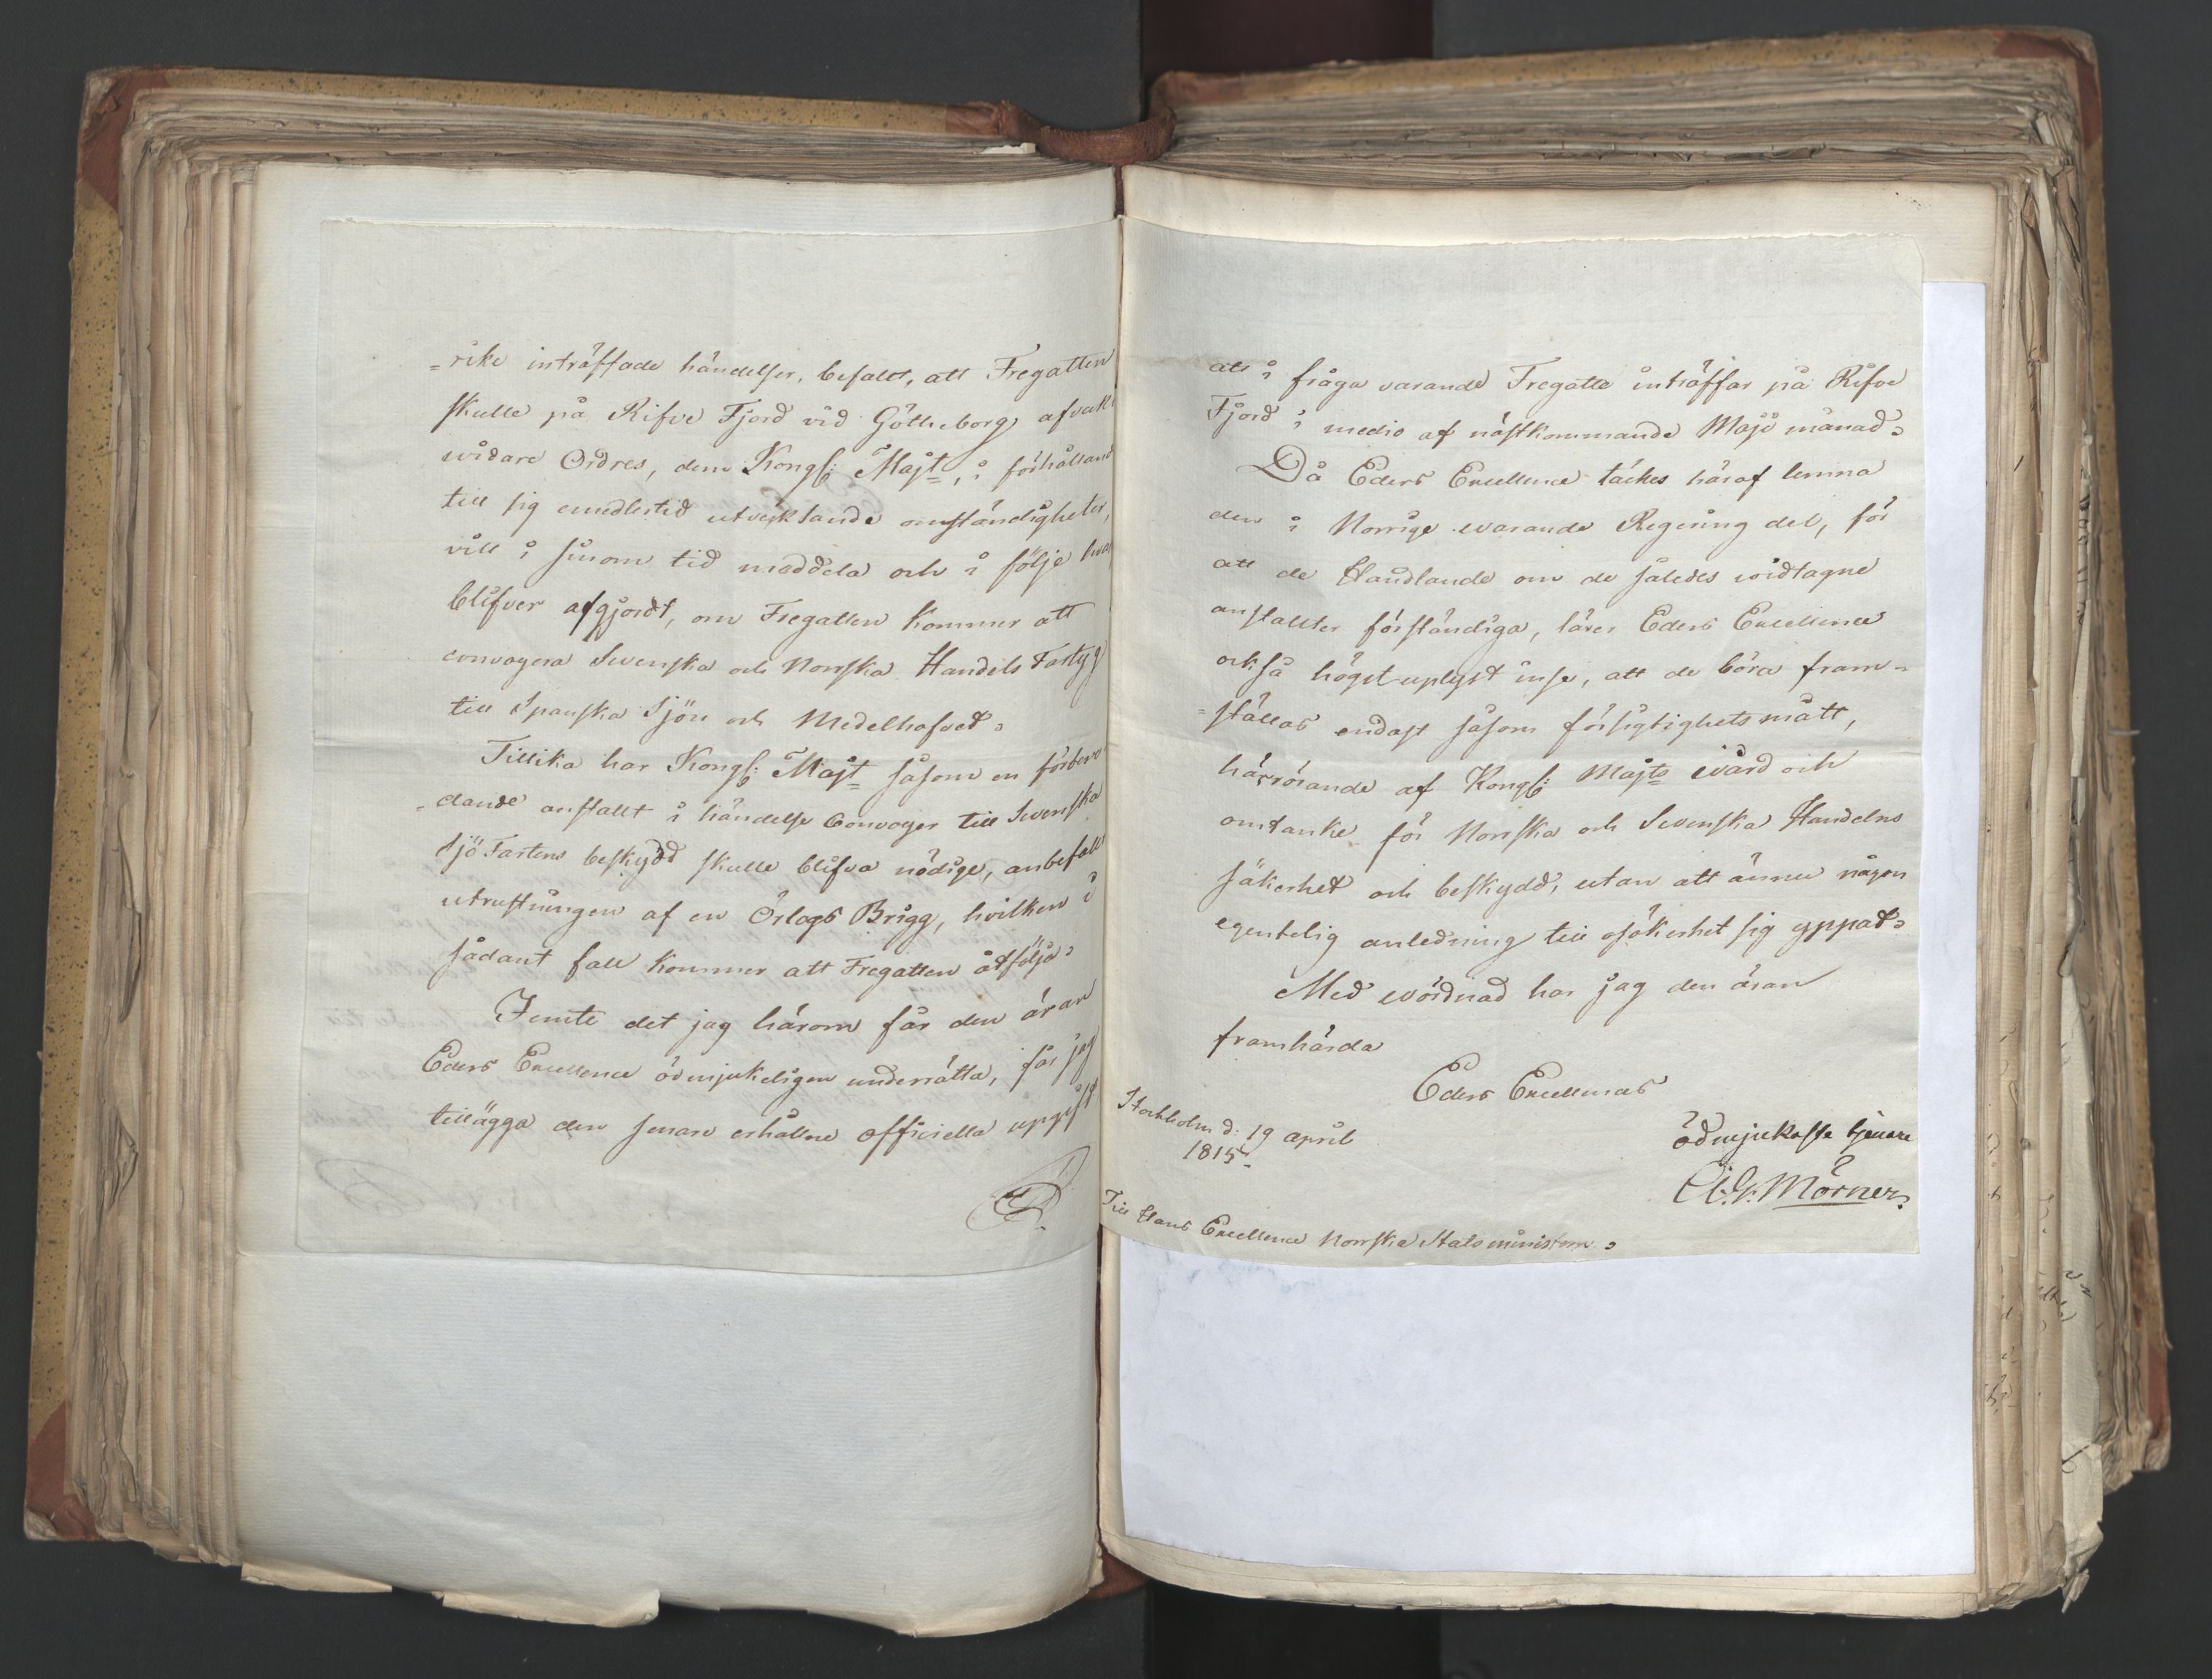 =rike inträffade händelser, befallt, att Fregatten
skulle på Rifve Fjord vid Götheborg afvakt
widare Ordres, dem Kongl: Majt, i förhålland
till sig emedlertid utvecklande omständigheter,
vill i sinom tid meddela och i följe hvar
blifver afgjordt, om Fregatten kommer att
convoyera Svenska och Norrska Handels Fartyg
till Spanska Sjön och Medelhafvet.
Tillika har Kongl: Majt såsom en förbere
=dande anstallt i händelse Convoyer till Svenska
SjöFartens beskydd skulle blifva nödige, anbefallt
utrustningen af en Örlogs Brigg, hvilken i
sådant fall kommer att Fregatten åtfölja.
Jemte det jag härom får den äran
Eders Excellence ödmjukeligen underrätta, får jag
tillägga den senare erhållne officiella uppgift
att i fråga varande Fregatte inträffar på Rifve
Fjord i medio af nästkommande Maji månad.
Då Eders Excellence täckes häraf lemna
den i Norrige warande Regering del, för
att de Handlande om de således widtagne
anstallter förständiga, lärer Eders Excellence
också högst uplyst inse, att de böra fram=
=ställas endast såsom försigtighetsmått,
härrörande af Kongl: Majts wård och
omtanke för Norrska och Svenska Handelns
säkerhet och beskydd, utan att ännu någon
egentelig anledning till osäkerhet sig yppat.
Med wördnad har jag den äran
framhärda
Eders Excellences
Stockholm d: 19 april
1815.
ödmjukaste tjenare
Mörner.
Till Hans Excellence Norrska Statsministern.